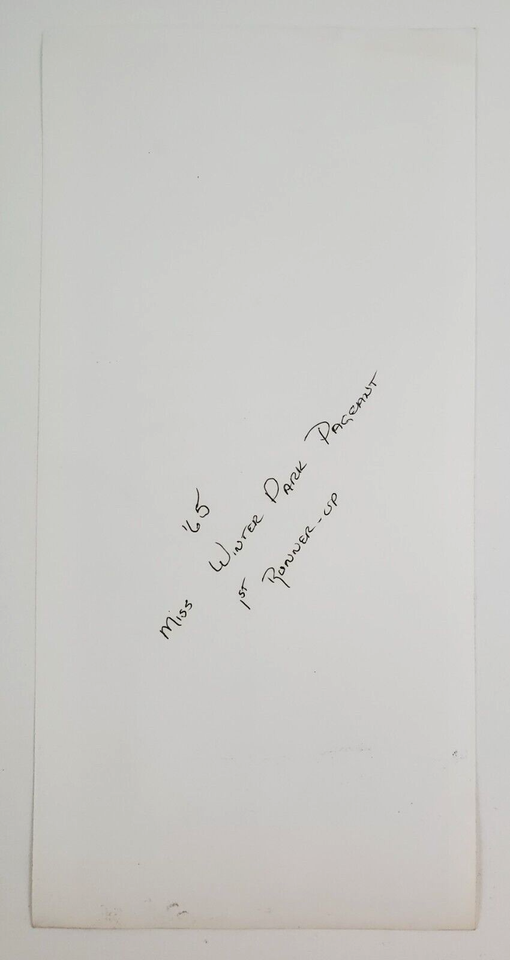 '65
Miss Winter Park Pageant
1st Runner-up